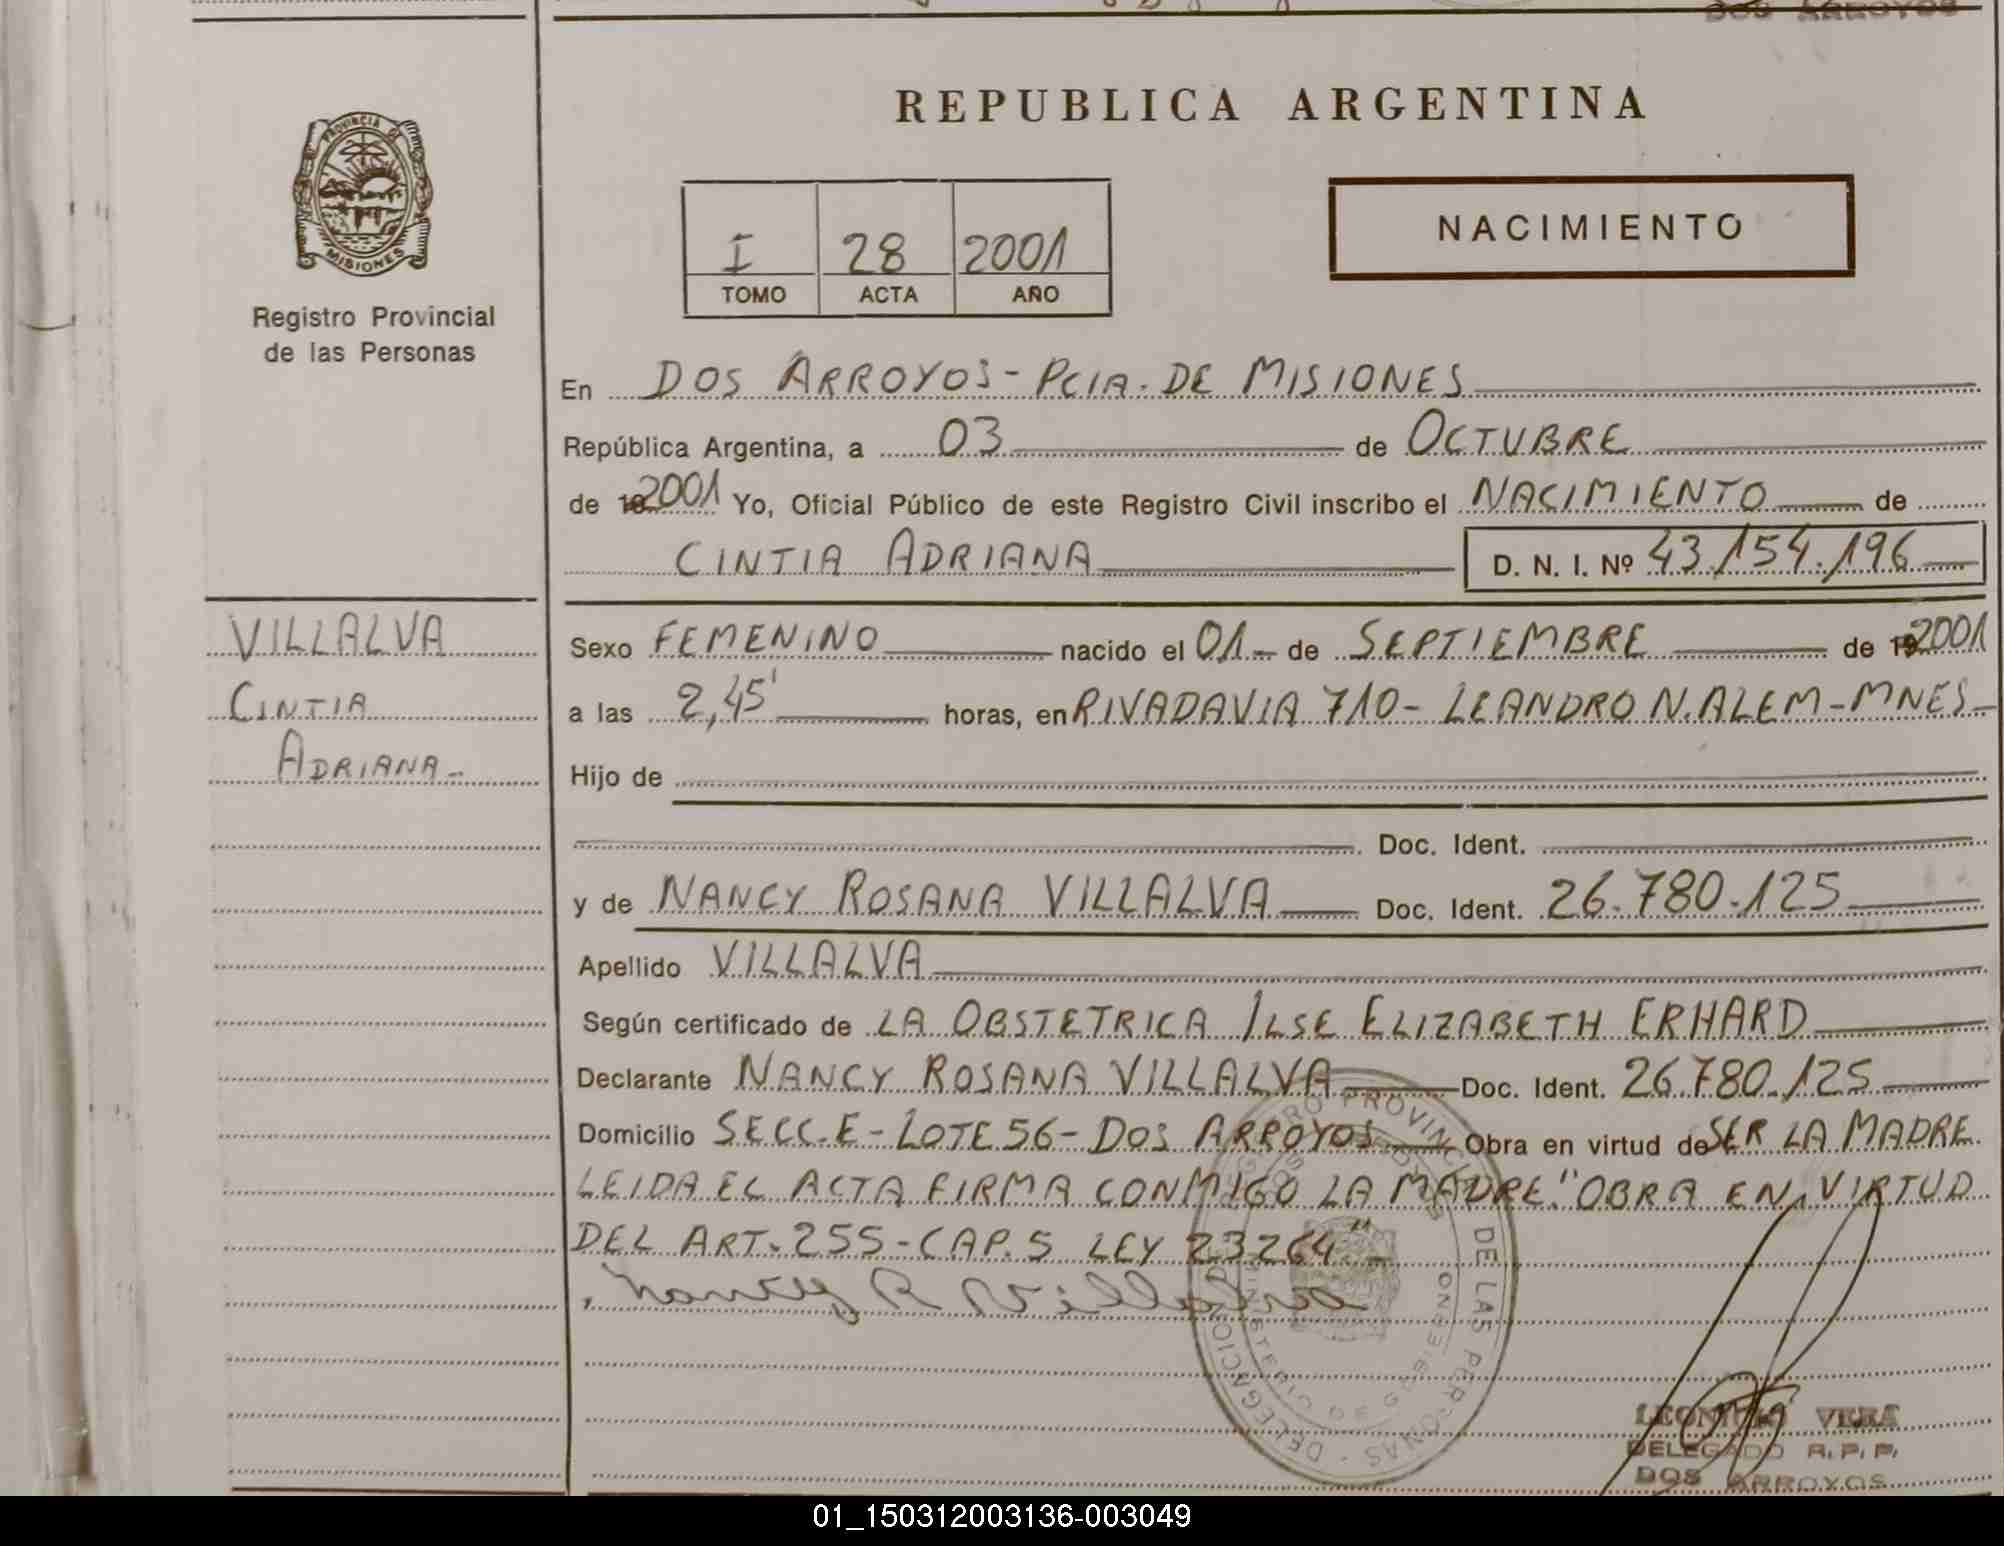 DOS ARROYOS
PROVINCIA DE
MISIONES
Registro Provincial
de las Personas
REPUBLICA ARGENTINA
I 28 2001
TOMO ACTA AÑO
NACIMIENTO
En DOS ARROYOS - PCIA. DE MISIONES
República Argentina, a 03 de OCTUBRE
de 19 2001 Yo, Oficial Público de este Registro Civil inscribo el NACIMIENTO de
CINTIA ADRIANA D. N. I. Nº 43.154.196
VILLALVA
CINTIA
ADRIANA-
Sexo FEMENINO nacido el 01 - de SEPTIEMBRE de 19 2001
a las 2,45' horas, en RIVADAVIA 710 - LEANDRO N. ALEM - MNES -
Hijo de
Doc. Ident.
y de NANCY ROSANA VILLALVA Doc. Ident. 26.780.125
Apellido VILLALVA
Según certificado de LA OBSTETRICA ILSE ELIZABETH ERHARD
Declarante NANCY ROSANA VILLALVA Doc. Ident. 26.780.125
Domicilio SECC. E - LOTE 56 - DOS ARROYOS Obra en virtud de SER LA MADRE
LEIDA EL ACTA FIRMA CONMIGO LA MADRE. "OBRA EN VIRTUD
DEL ART. 255 - CAP. 5 LEY 23264" -
Nancy R Villalva
REGISTRO PROVINCIAL DE LAS PERSONAS - DELEGACION DE
DOS ARROYOS
MINISTERIO DE GOBIERNO
VERA
DELEGADO R. P. P.
DOS ARROYOS
01_150312003136-003049